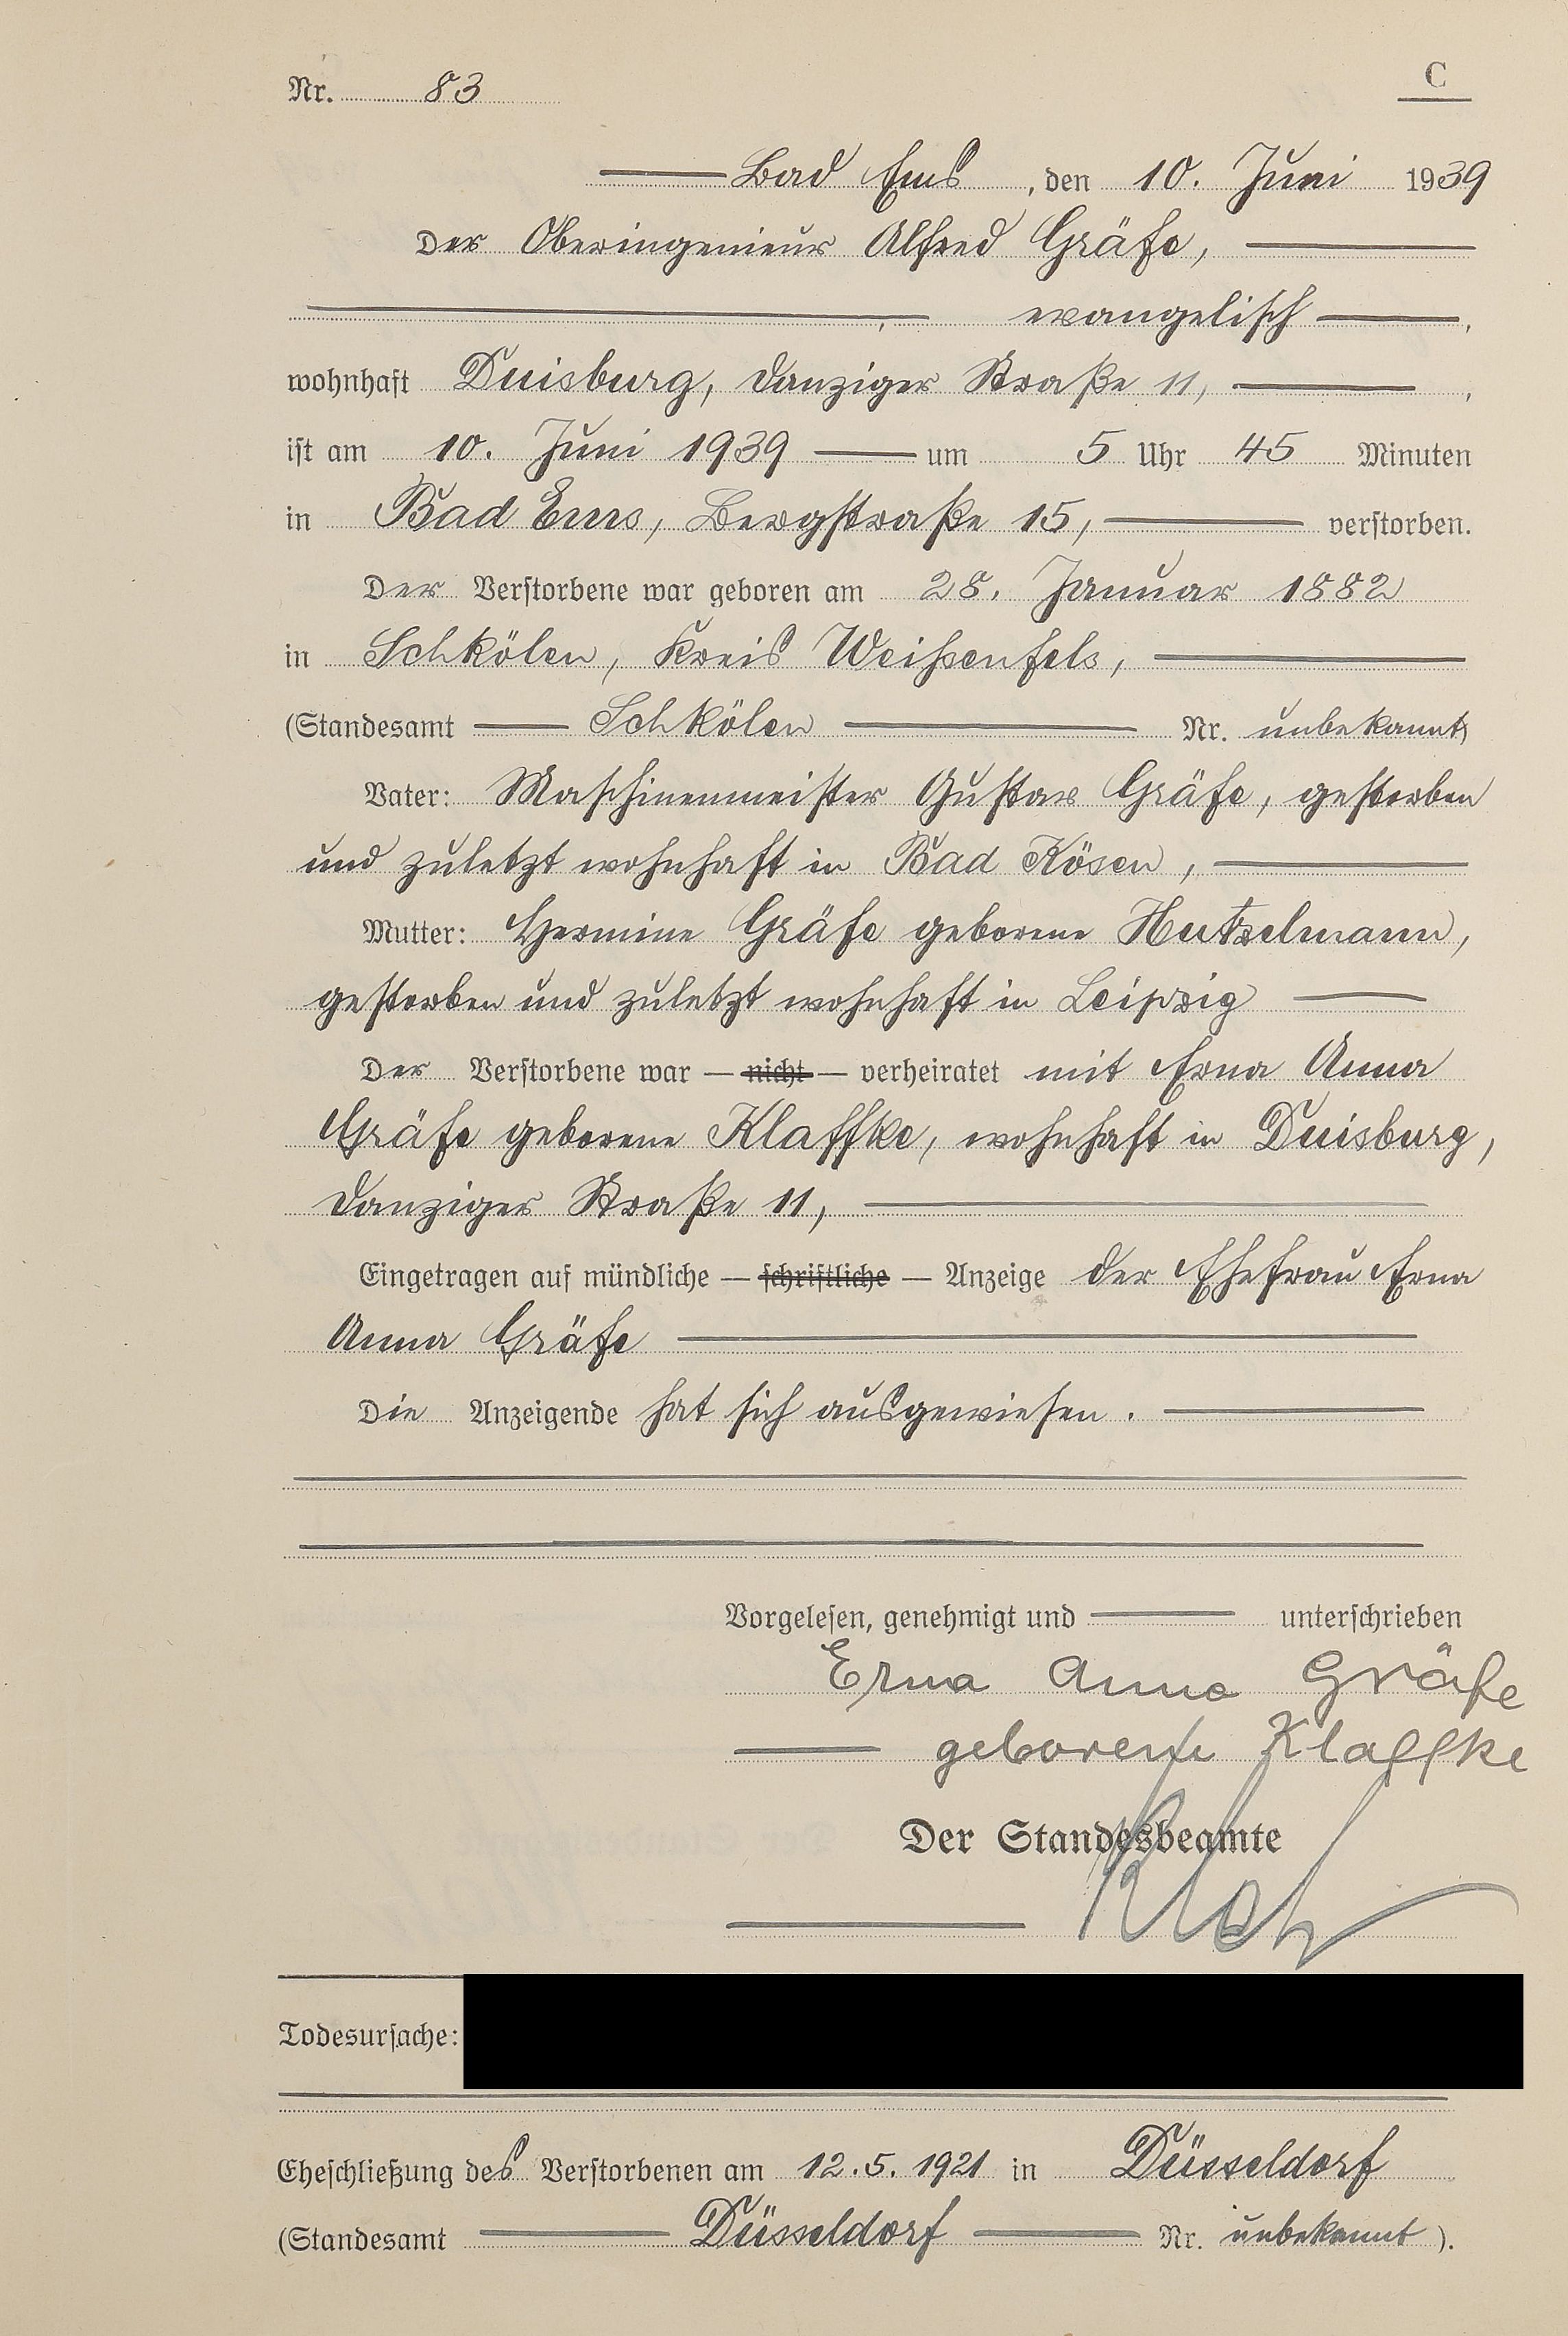 Nr. 83
C
Bad Ems, den 10. Juni 1939
Der Oberingenieur Alfred Gräfe,
, evangelisch ,
wohnhaft Duisburg, Danziger Straße 11, ,
ist am 10. Juni 1939 um 5 Uhr 45 Minuten
in Bad Ems, Bergstraße 15, verstorben.
Der Verstorbene war geboren am 28. Januar 1882
in Schkölen, Kreis Weißenfels,
(Standesamt Schkölen Nr. unbekannt)
Vater: Maschinenmeister Gustav Gräfe, gestorben
und zuletzt wohnhaft in Bad Kösen,
Mutter: Hermine Gräfe geborene Hutzelmann,
gestorben und zuletzt wohnhaft in Leipzig
Der Verstorbene war — nicht — verheiratet mit Erna Anna
Gräfe geborene Klaffke, wohnhaft in Duisburg,
Danziger Straße 11,
Eingetragen auf mündliche — schriftliche — Anzeige der Ehefrau Erna
Anna Gräfe
Die Anzeigende hat sich ausgewiesen.
Vorgelesen, genehmigt und unterschrieben
Erna Anna Gräfe
geborene Klaffke
Der Standesbeamte
Todesursache:
Eheschließung des Verstorbenen am 12.5.1921 in Düsseldorf
(Standesamt Düsseldorf Nr. unbekannt).